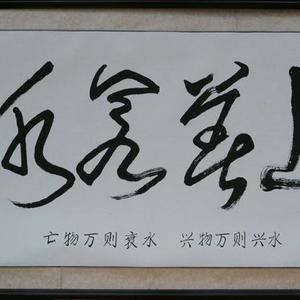 上善若水
水兴则万物兴 水衰则万物亡